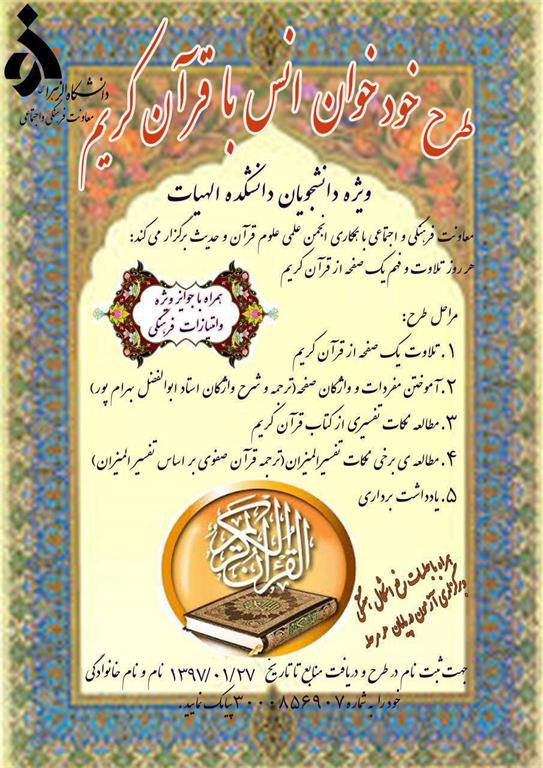 دانشگاه الزهرا
معاونت فرهنگی و اجتماعی
طرح خودخوان انس با قرآن کریم
ویژه دانشجویان دانشکده الهیات
معاونت فرهنگی و اجتماعی با همکاری انجمن علمی علوم قرآن و حدیث برگزار می کند:
هر روز تلاوت و فهم یک صفحه از قرآن کریم
همراه با جوایز ویژه
و امتیازات فرهنگی
مراحل طرح:
۱. تلاوت یک صفحه از قرآن کریم
۲. آموختن مفردات و واژگان صفحه (ترجمه و شرح واژگان استاد ابوالفضل بهرام پور)
۳. مطالعه نکات تفسیری از کتاب قرآن کریم
۴. مطالعه ی برخی نکات تفسیرالمیزان (ترجمه قرآن صفوی بر اساس تفسیر المیزان)
۵. یادداشت برداری
القرآن الكريم
همراه با جلسات رفع اشکال هفتگی
و برگزاری آزمون در پایان هر مرحله
جهت ثبت نام در طرح و دریافت منابع تا تاریخ ۱۳۹۷/۰۱/۲۷ نام و نام خانوادگی
خود را به شماره ۳۰۰۰۸۵۶۹۰۷ پیامک نمایید.